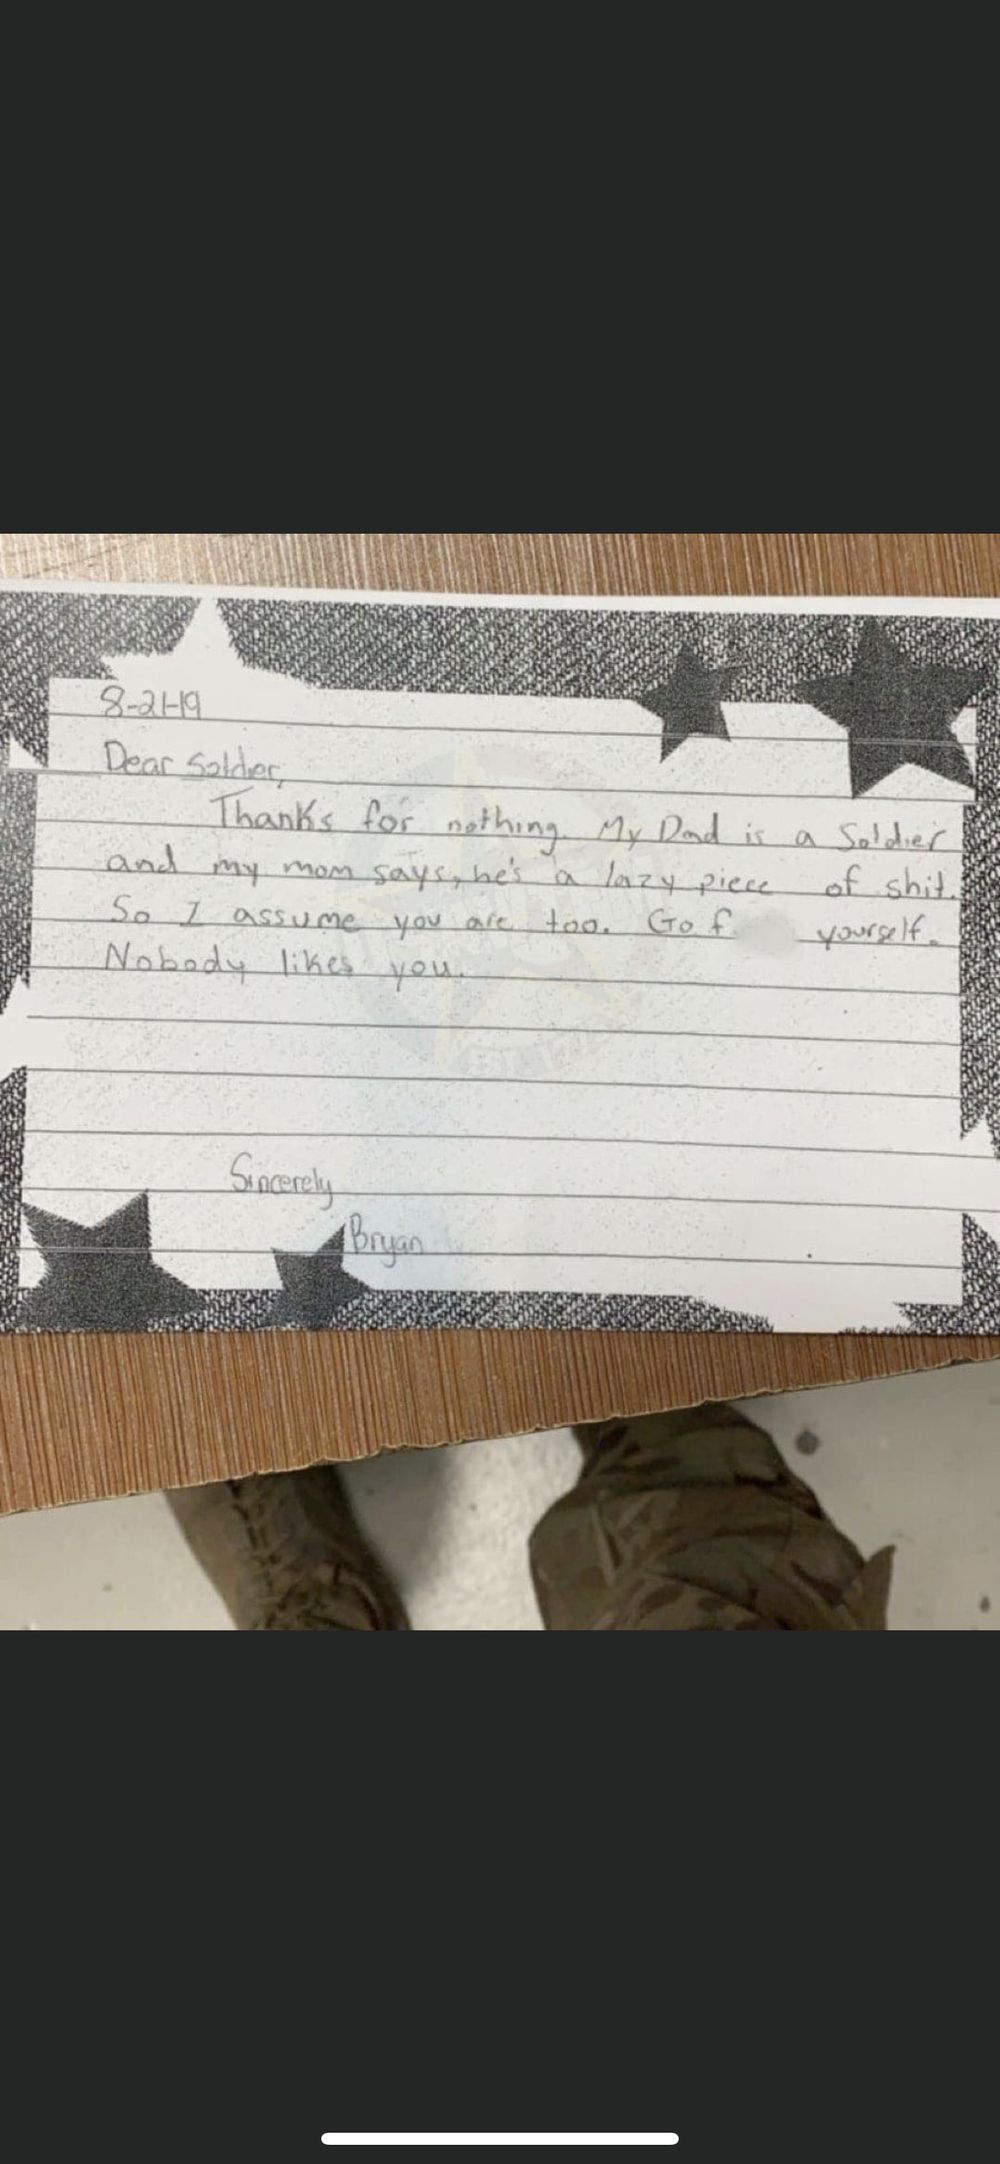 8-21-19
Dear Soldier,
Thanks for nothing. My Dad is a Soldier
and my mom says, he's a lazy piece of shit.
So I assume you are too. Go f yourself.
Nobody likes you.
Sincerely
Bryan